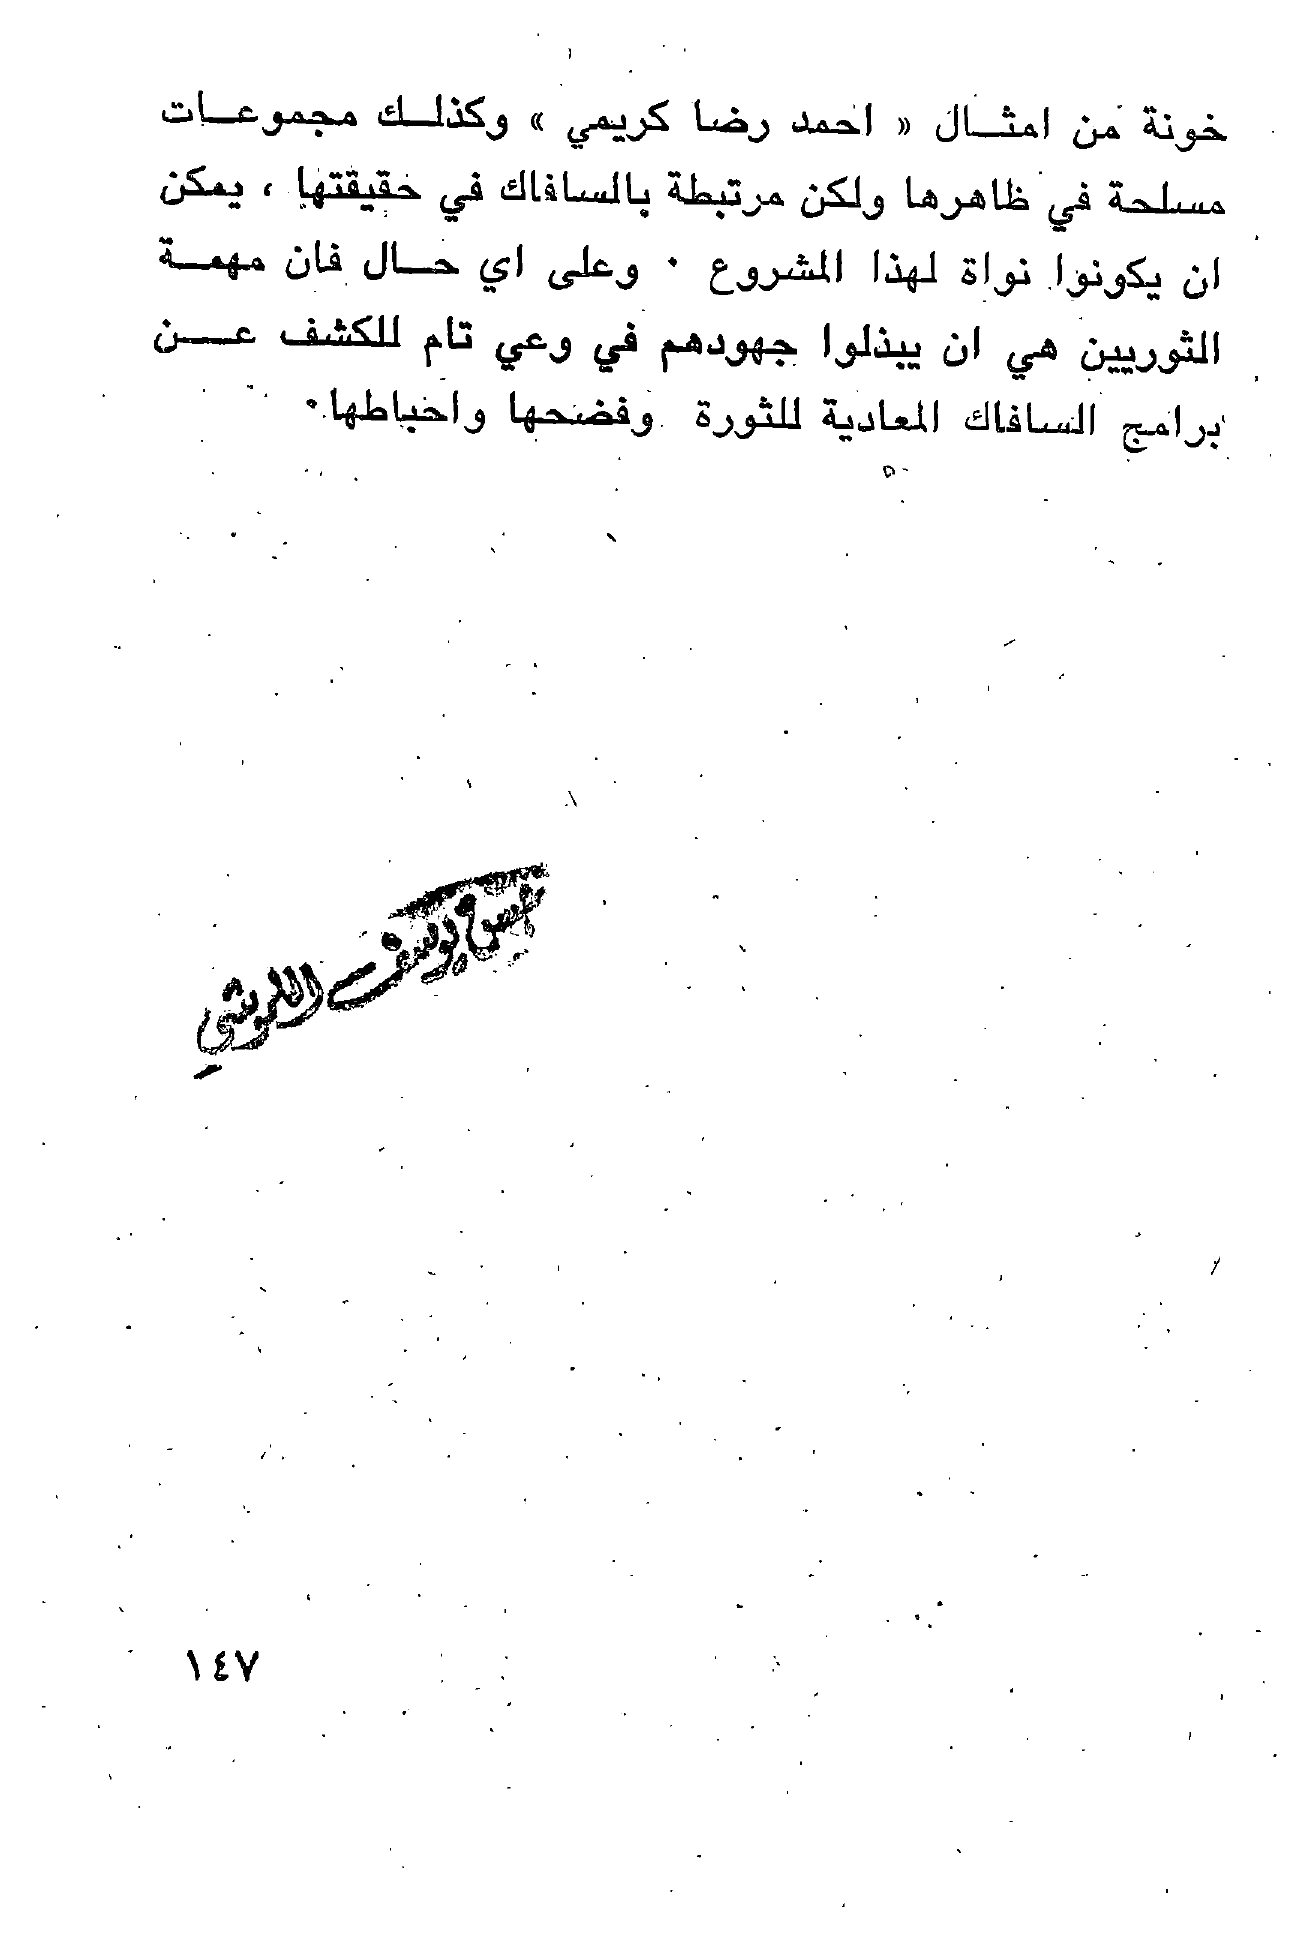 خونة من امثـــال « احمد رضا كريمي » وكذلـــك مجموعـــات
مسلحة في ظاهرها ولكن مرتبطة بالسافاك في حقيقتها ، يمكن
ان يكونوا نواة لهذا المشروع ٠ وعلى اي حـــال فان مهمـــة
الثوريين هي ان يبذلوا جهودهم في وعي تام للكشف عـــن
برامج السافاك المعادية للثورة وفضحها واحباطها٠
يوسف
١٤٧